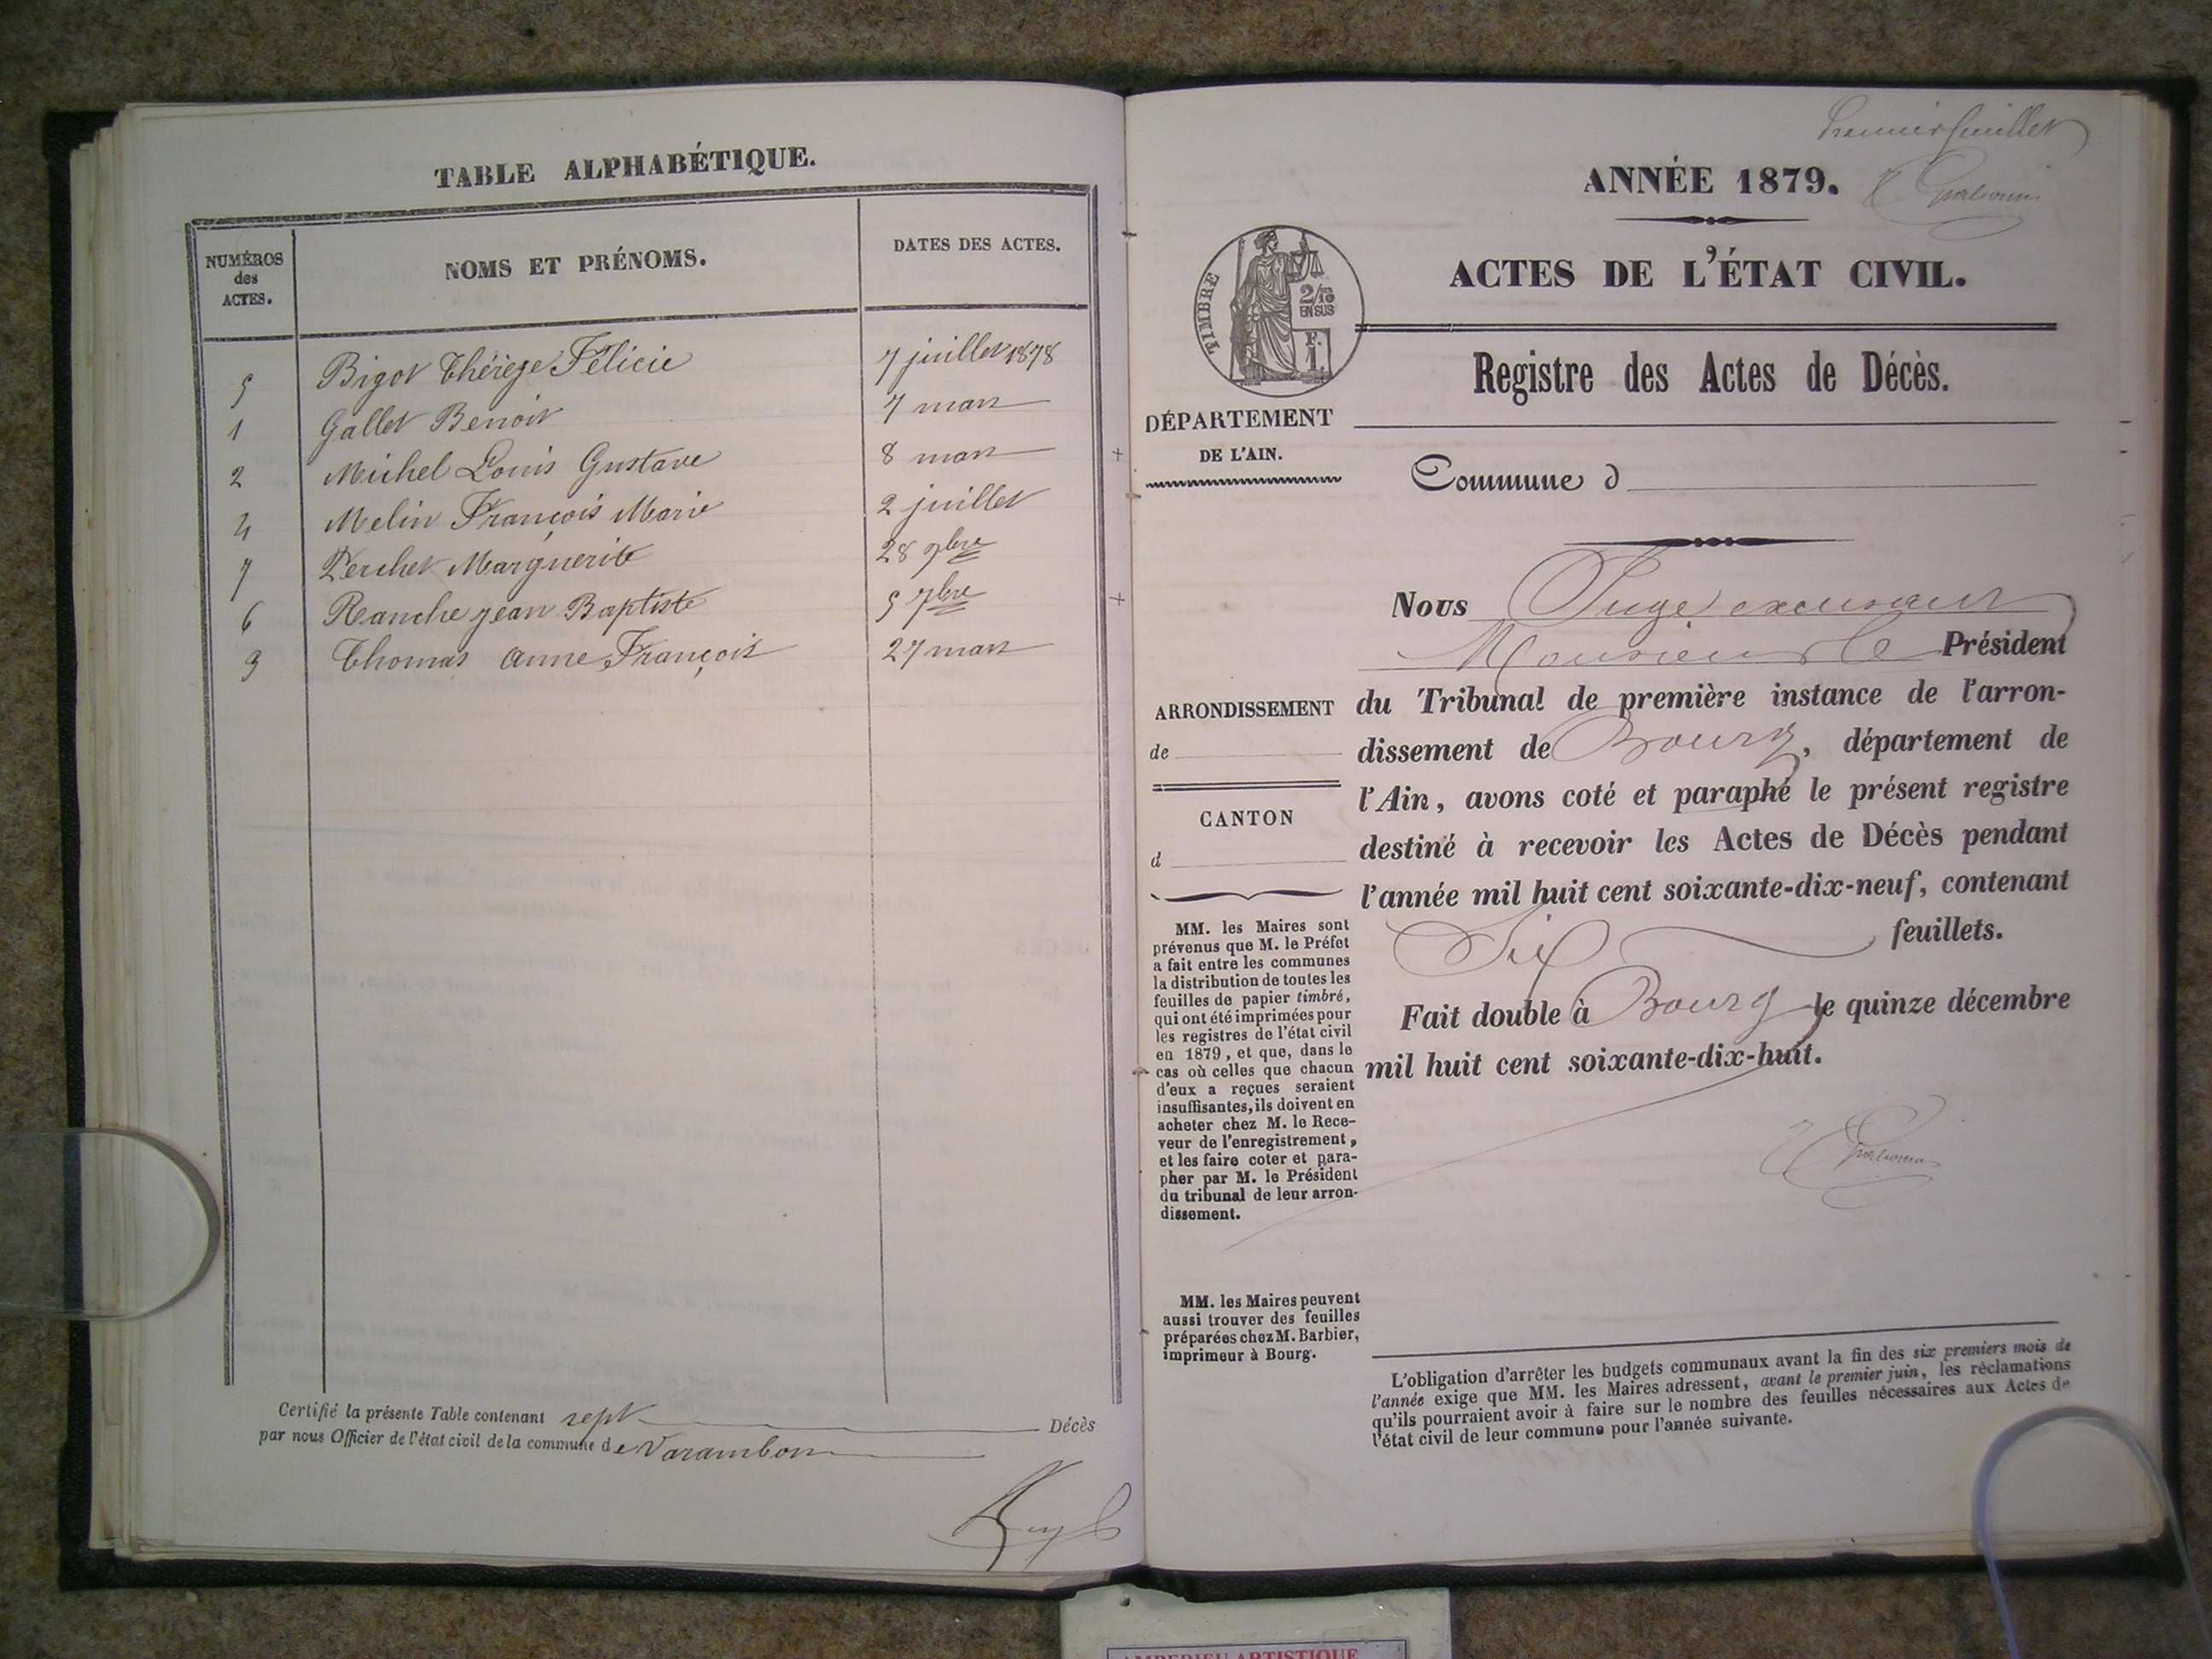 TABLE ALPHABÉTIQUE.
NUMÉROS
des
ACTES.
NOMS ET PRÉNOMS.
DATES DES ACTES.
5 Bigot Thérèze Félicie 7 juillet 1878
1 Gallet Benoit 7 mars
2 Michel Louis Gustave 8 mars
4 Melin François Marie 2 juillet
7 Perchet Marguerite 28 9bre
6 Ranche jean Baptiste 5 7bre
3 Thomas Anne François 27 mars
Certifié la présente Table contenant sept Décès
par nous Officier de l'état civil de la commune de Varambon
Premier feuillet
ANNÉE 1879.
ACTES DE L'ÉTAT CIVIL.
TIMBRE
2/10
EN SUS
F.
1.
Registre des Actes de Décès.
DÉPARTEMENT
DE L'AIN.
Commune d
Nous Juge excusant
Monsieur le Président
du Tribunal de première instance de l'arron-
dissement de Bourg, département de
l'Ain, avons coté et paraphé le présent registre
destiné à recevoir les Actes de Décès pendant
l'année mil huit cent soixante-dix-neuf, contenant
Six feuillets.
Fait double à Bourg le quinze décembre
mil huit cent soixante-dix-huit.
ARRONDISSEMENT
de
CANTON
d
MM. les Maires sont
prévenus que M. le Préfet
a fait entre les communes
la distribution de toutes les
feuilles de papier timbré,
qui ont été imprimées pour
les registres de l'état civil
en 1879, et que, dans le
cas où celles que chacun
d'eux a reçues seraient
insuffisantes, ils doivent en
acheter chez M. le Rece-
veur de l'enregistrement,
et les faire coter et para-
pher par M. le Président
du tribunal de leur arron-
dissement.
MM. les Maires peuvent
aussi trouver des feuilles
préparées chez M. Barbier,
imprimeur à Bourg.
L'obligation d'arrêter les budgets communaux avant la fin des six premiers mois de
l'année exige que MM. les Maires adressent, avant le premier juin, les réclamations
qu'ils pourraient avoir à faire sur le nombre des feuilles nécessaires aux Actes de
l'état civil de leur commune pour l'année suivante.
AMBERIEU ARTISTIQUE